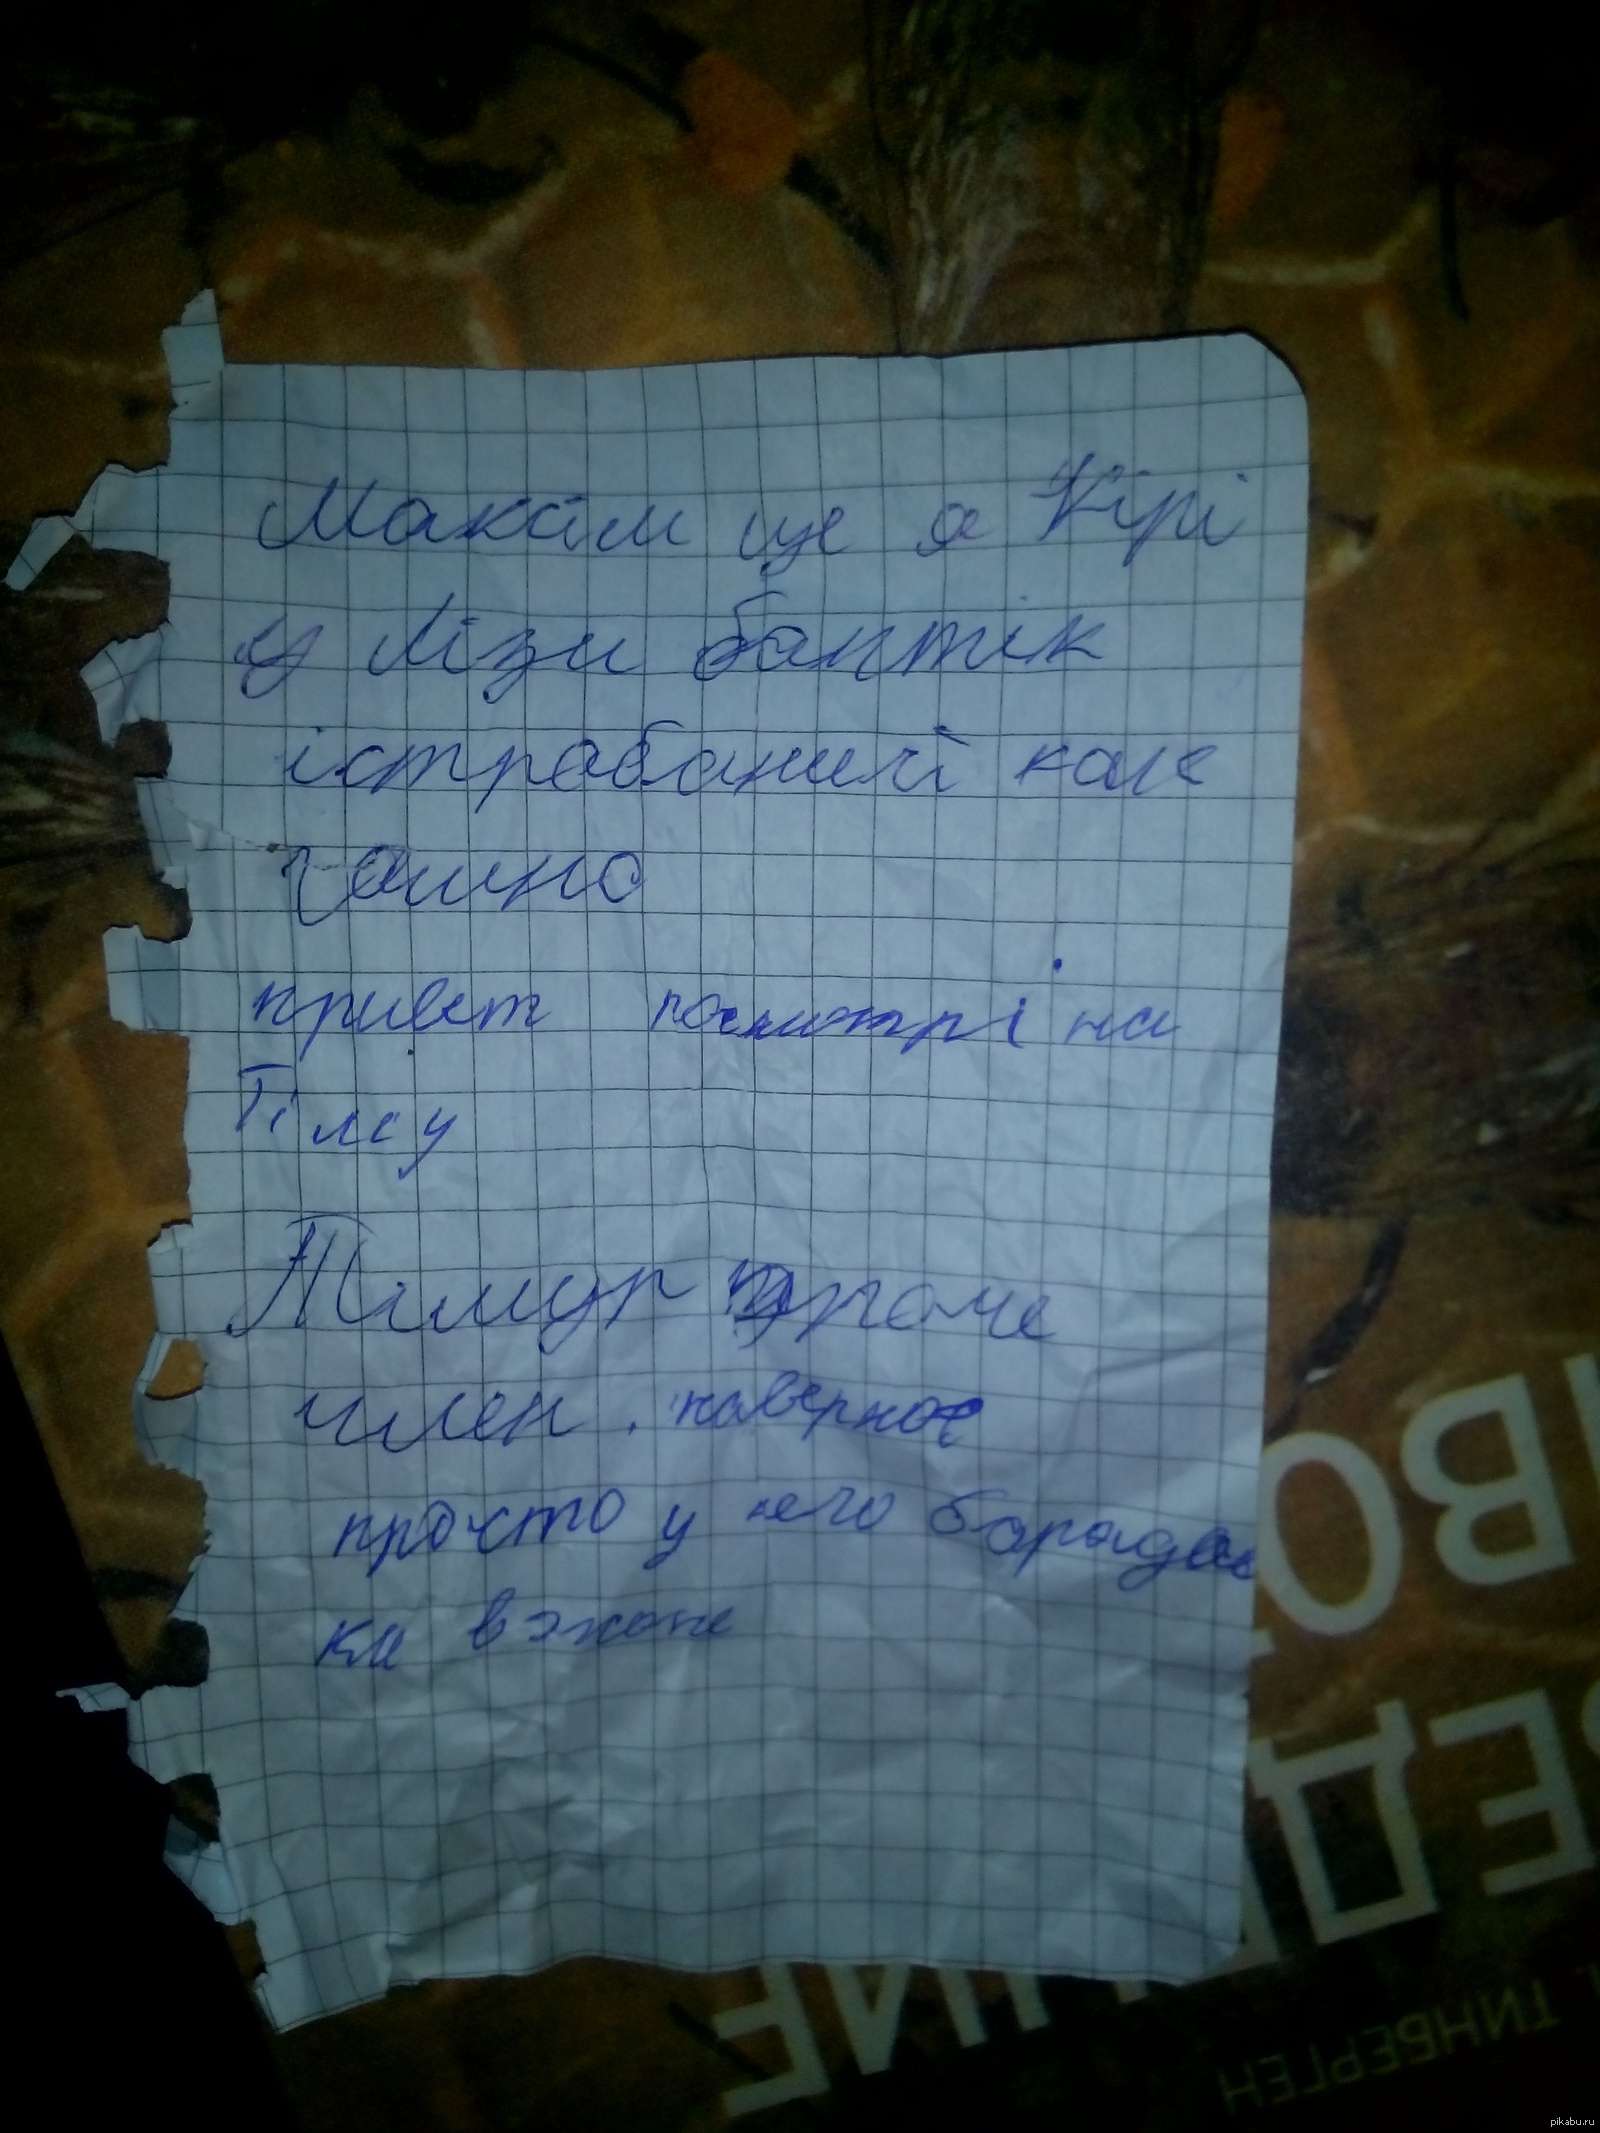 Максім це я Кірі
у Лізи бантік
істрабаний как
гамно
привет посмотрі на
Гілсу
Тімур дроче
член. наверное
просто у него барадав
ки в жопе
ТИНБЕРГЕН
pikabu.ru